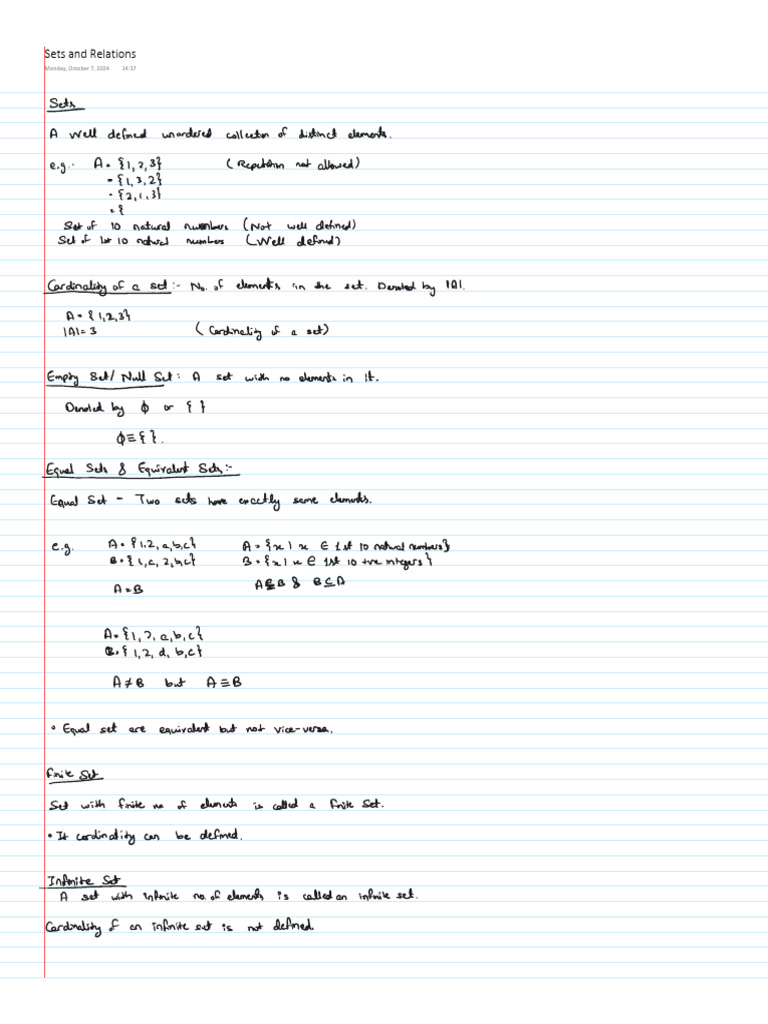 Sets and Relations
Monday, October 7, 2024 14:37
Sets
A well defined unordered collection of distinct elements.
e.g:- A = {1, 2, 3} (Repetition not allowed)
= {1, 3, 2}
= {2, 1, 3}
= {
Set of 10 natural numbers (Not well defined)
Set of 1st 10 natural numbers (Well defined)
Cardinality of a set :- No. of elements in the set. Denoted by |A|.
A = {1, 2, 3}
|A| = 3 (Cardinality of a set)
Empty Set/ Null Set : A set with no elements in it.
Denoted by ϕ or { }
ϕ ≡ { }.
Equal Sets & Equivalent Sets :-
Equal Set - Two sets have exactly same elements.
e.g. A = {1, 2, a, b, c} A = {x | x ∈ 1st 10 natural numbers}
B = {1, a, 2, b, c} B = {x | x ∈ 1st 10 +ve integers}
A = B A ⊆ B & B ⊆ A
A = {1, 2, a, b, c}
B = {1, 2, d, b, c}
A ≠ B but A ≡ B
• Equal set are equivalent but not vice-versa.
Finite Set
Set with finite no of elements is called a finite set.
• It cardinality can be defined.
Infinite Set
A set with infinite no. of elements is called an infinite set.
Cardinality of an infinite set is not defined.